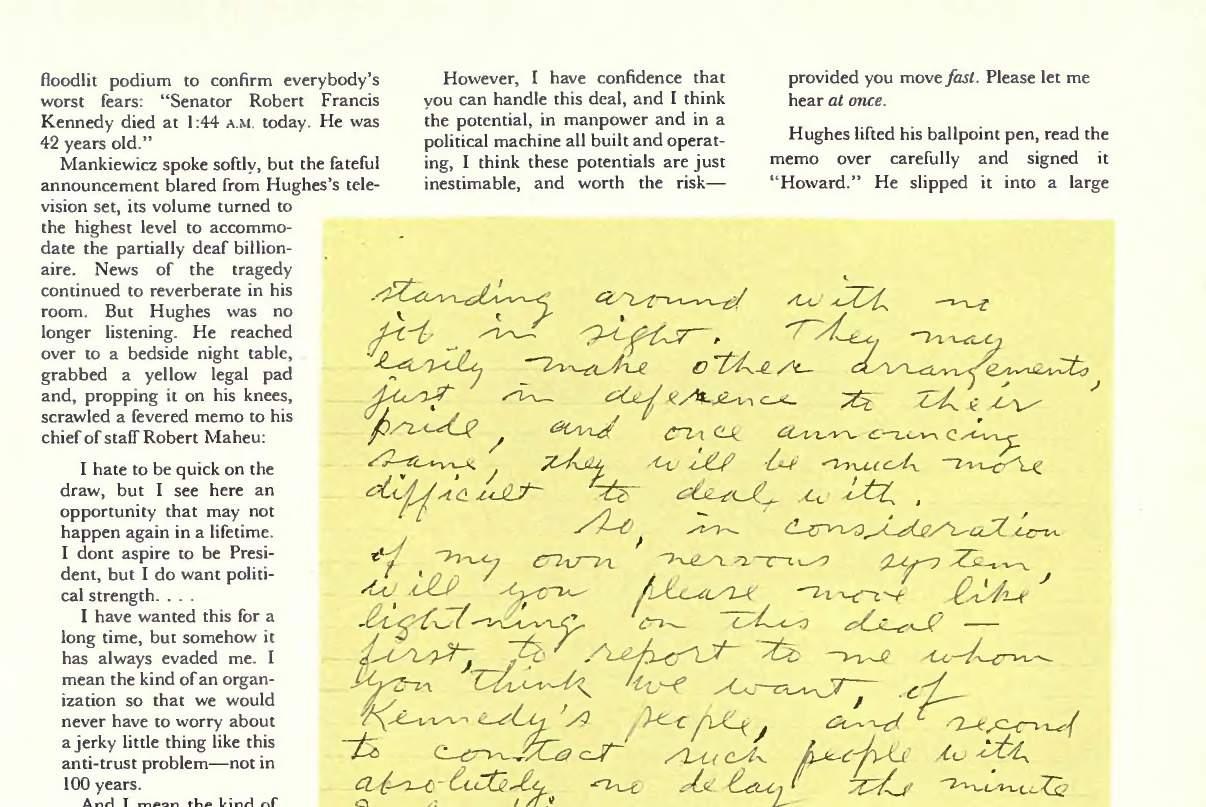 floodlit podium to confirm everybody's
worst fears: "Senator Robert Francis
Kennedy died at 1:44 A.M. today. He was
42 years old."
Mankiewicz spoke softly, but the fateful
announcement blared from Hughes's tele-
vision set, its volume turned to
the highest level to accommo-
date the partially deaf billion-
aire. News of the tragedy
continued to reverberate in his
room. But Hughes was no
longer listening. He reached
over to a bedside night table,
grabbed a yellow legal pad
and, propping it on his knees,
scrawled a fevered memo to his
chief of staff Robert Maheu:
I hate to be quick on the
draw, but I see here an
opportunity that may not
happen again in a lifetime.
I dont aspire to be Presi-
dent, but I do want politi-
cal strength. . . .
I have wanted this for a
long time, but somehow it
has always evaded me. I
mean the kind of an organ-
ization so that we would
never have to worry about
a jerky little thing like this
anti-trust problem—not in
100 years.
And I mean the kind of
However, I have confidence that
you can handle this deal, and I think
the potential, in manpower and in a
political machine all built and operat-
ing, I think these potentials are just
inestimable, and worth the risk—
provided you move fast. Please let me
hear at once.
Hughes lifted his ballpoint pen, read the
memo over carefully and signed it
"Howard." He slipped it into a large
standing around with no
job in sight. They may
easily make other arrangements,
just in deference to their
pride, and once announcing
same, they will be much more
difficult to deal with.
So, in consideration
of my own nervous system,
will you please move like
lightning on this deal —
first, to report to me whom
you think we want, of
Kennedy's people, and second
to contact such people with
absolutely no delay the minute